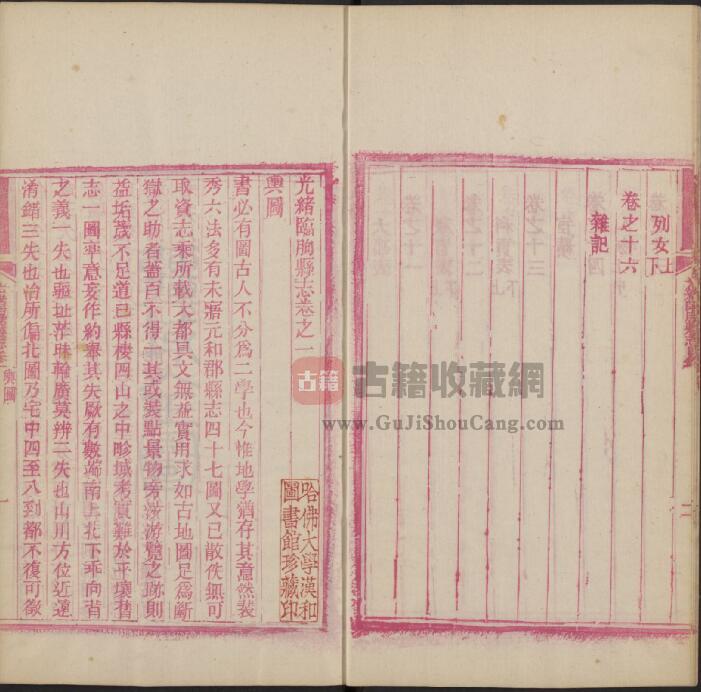 列女上下
卷之十六
雜記
二
光緒臨朐縣志卷之一
輿圖
書必有圖古人不分爲二學也今惟地學猶存其意然裴
秀六法多有未𤻊元和郡縣志四十七圖又已散佚無可
取資志乘所載大都具文無益實用求如古地圖足爲斷
獄之助者蓋百不得一其或裝點景物旁涉游覽之跡則
益垢蔑不足道已縣棲四山之中畛域考實難於平壤舊
志一圖率意妄作約舉其失厥有數端南上北下乖向背
之義一失也疆址茫昧輪廣莫辨二失也山川方位近遠
淆錯三失也治所偏北圖乃宅中四至八到都不復可徵
輿圖
一
哈佛大學漢和
圖書館珍藏印
古籍
古籍收藏網
www.GuJiShouCang.com